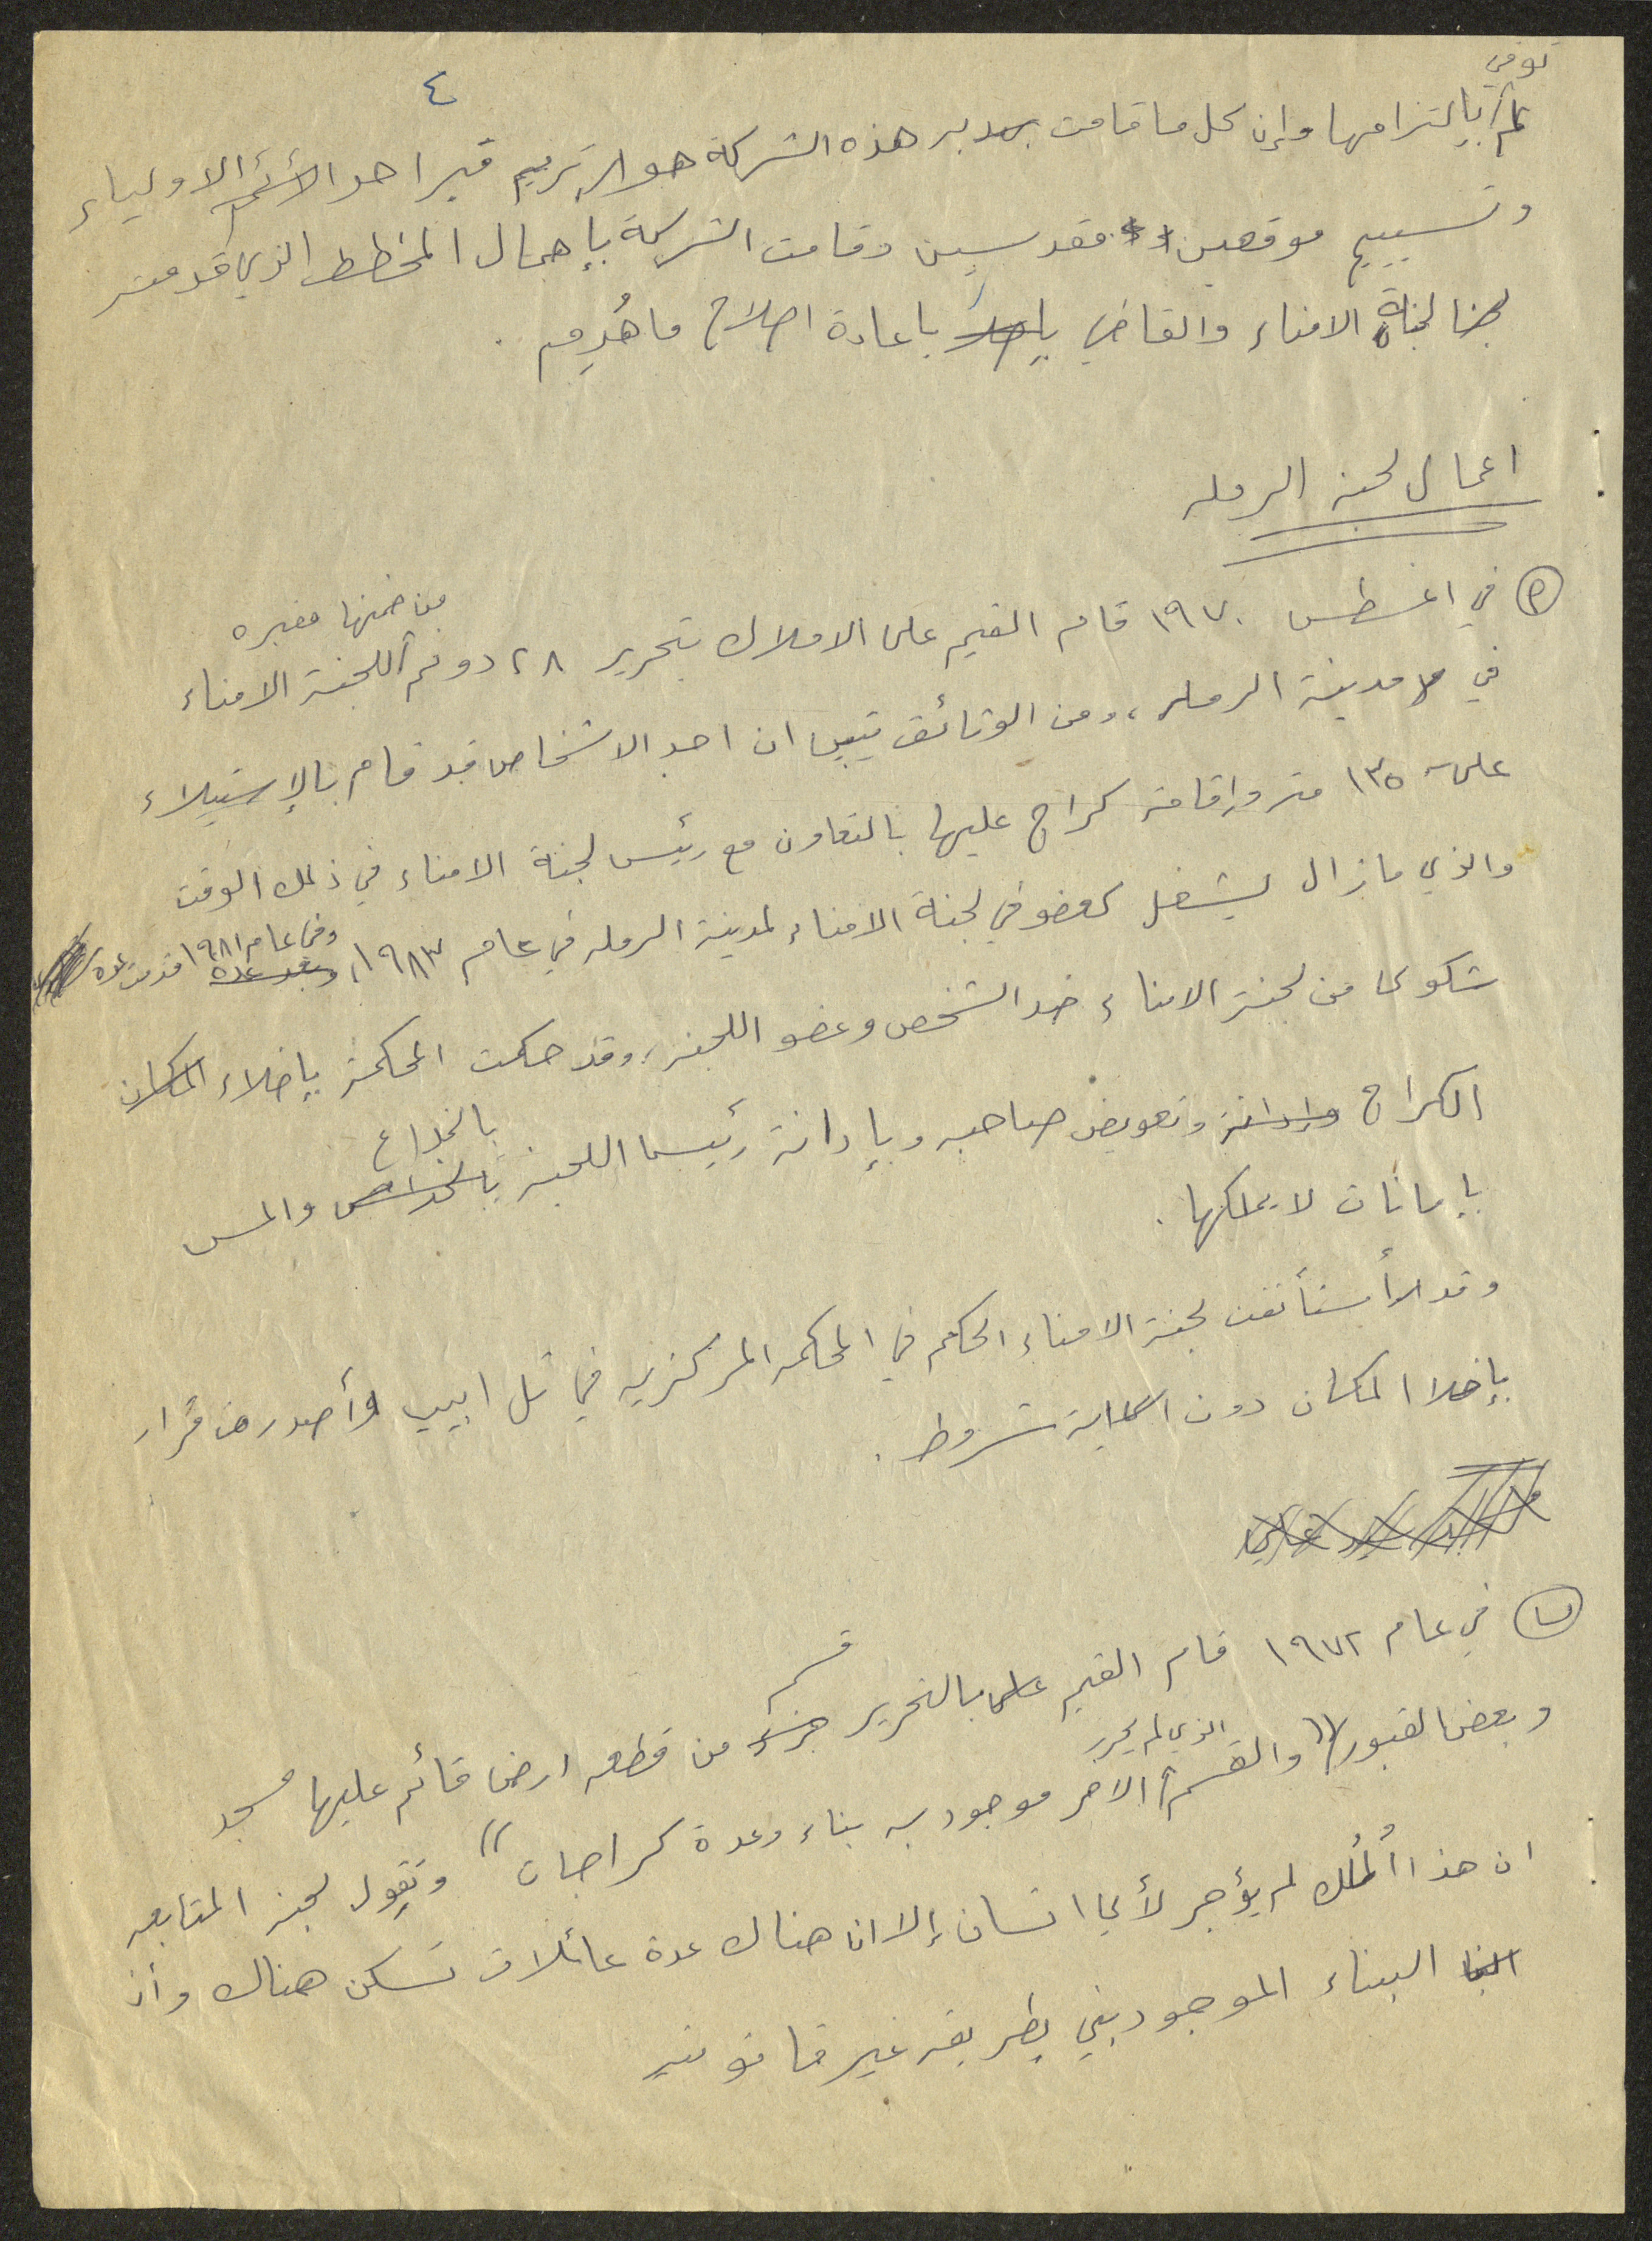 ٤
توفي
لم بالتزامها وإن كل ما قامت به هذه الشركة هو ترميم قبر احد الأئمة الاولياء
وتسييج موقعين مقدسين وقامت الشركة بإهمال المخطط الذي قدمته
لجنة الامناء والقاضي باعادة اصلاح ما هُدم .
اعمال لجنة الرمله
من ضمنها مقبره
في اغسطس ١٩٧٠ قام القيم على الاملاك بتحرير ٢٨ دونم للجنة الامناء
في مدينة الرمله، ومن الوثائق يتبين ان احد الاشخاص قد قام بالإستيلاء
على ١٣٥ متر واقامة كراج عليها بالتعاون مع رئيس لجنة الامناء في ذلك الوقت
والذي مازال يشغل كعضو في لجنة الامناء لمدينة الرمله في عام ١٩٨٣، وفي عام ١٩٨١ قدمت عده
شكوى من لجنة الامناء ضد الشخص وعضو اللجنه، وقد حكمت المحكمة بإخلاء المكان
الكراج وتعويض صاحبه وبإدانة رئيس اللجنه بالخداع والمس
بإمانات لا يملكها .
وقد أستأنفت لجنة الامناء الحكم في المحكمه المركزيه في تل ابيب وأصدرت قرار
بإخلا المكان دون اية شروط .
ب في عام ١٩٧٢ قام القيم بالتحرير قسم من قطعه ارض قائم عليها مسجد
الذي لم يحرر
وبعض القبور "والقسم الاخر موجود به بناء وعدة كراجات" وتقول لجنة المتابعه
ان هذا المُلك لم يؤجر لأي انسان إلا ان هناك عدة عائلات تسكن هناك وأن
البناء الموجود بني بطريقه غير قانونيه